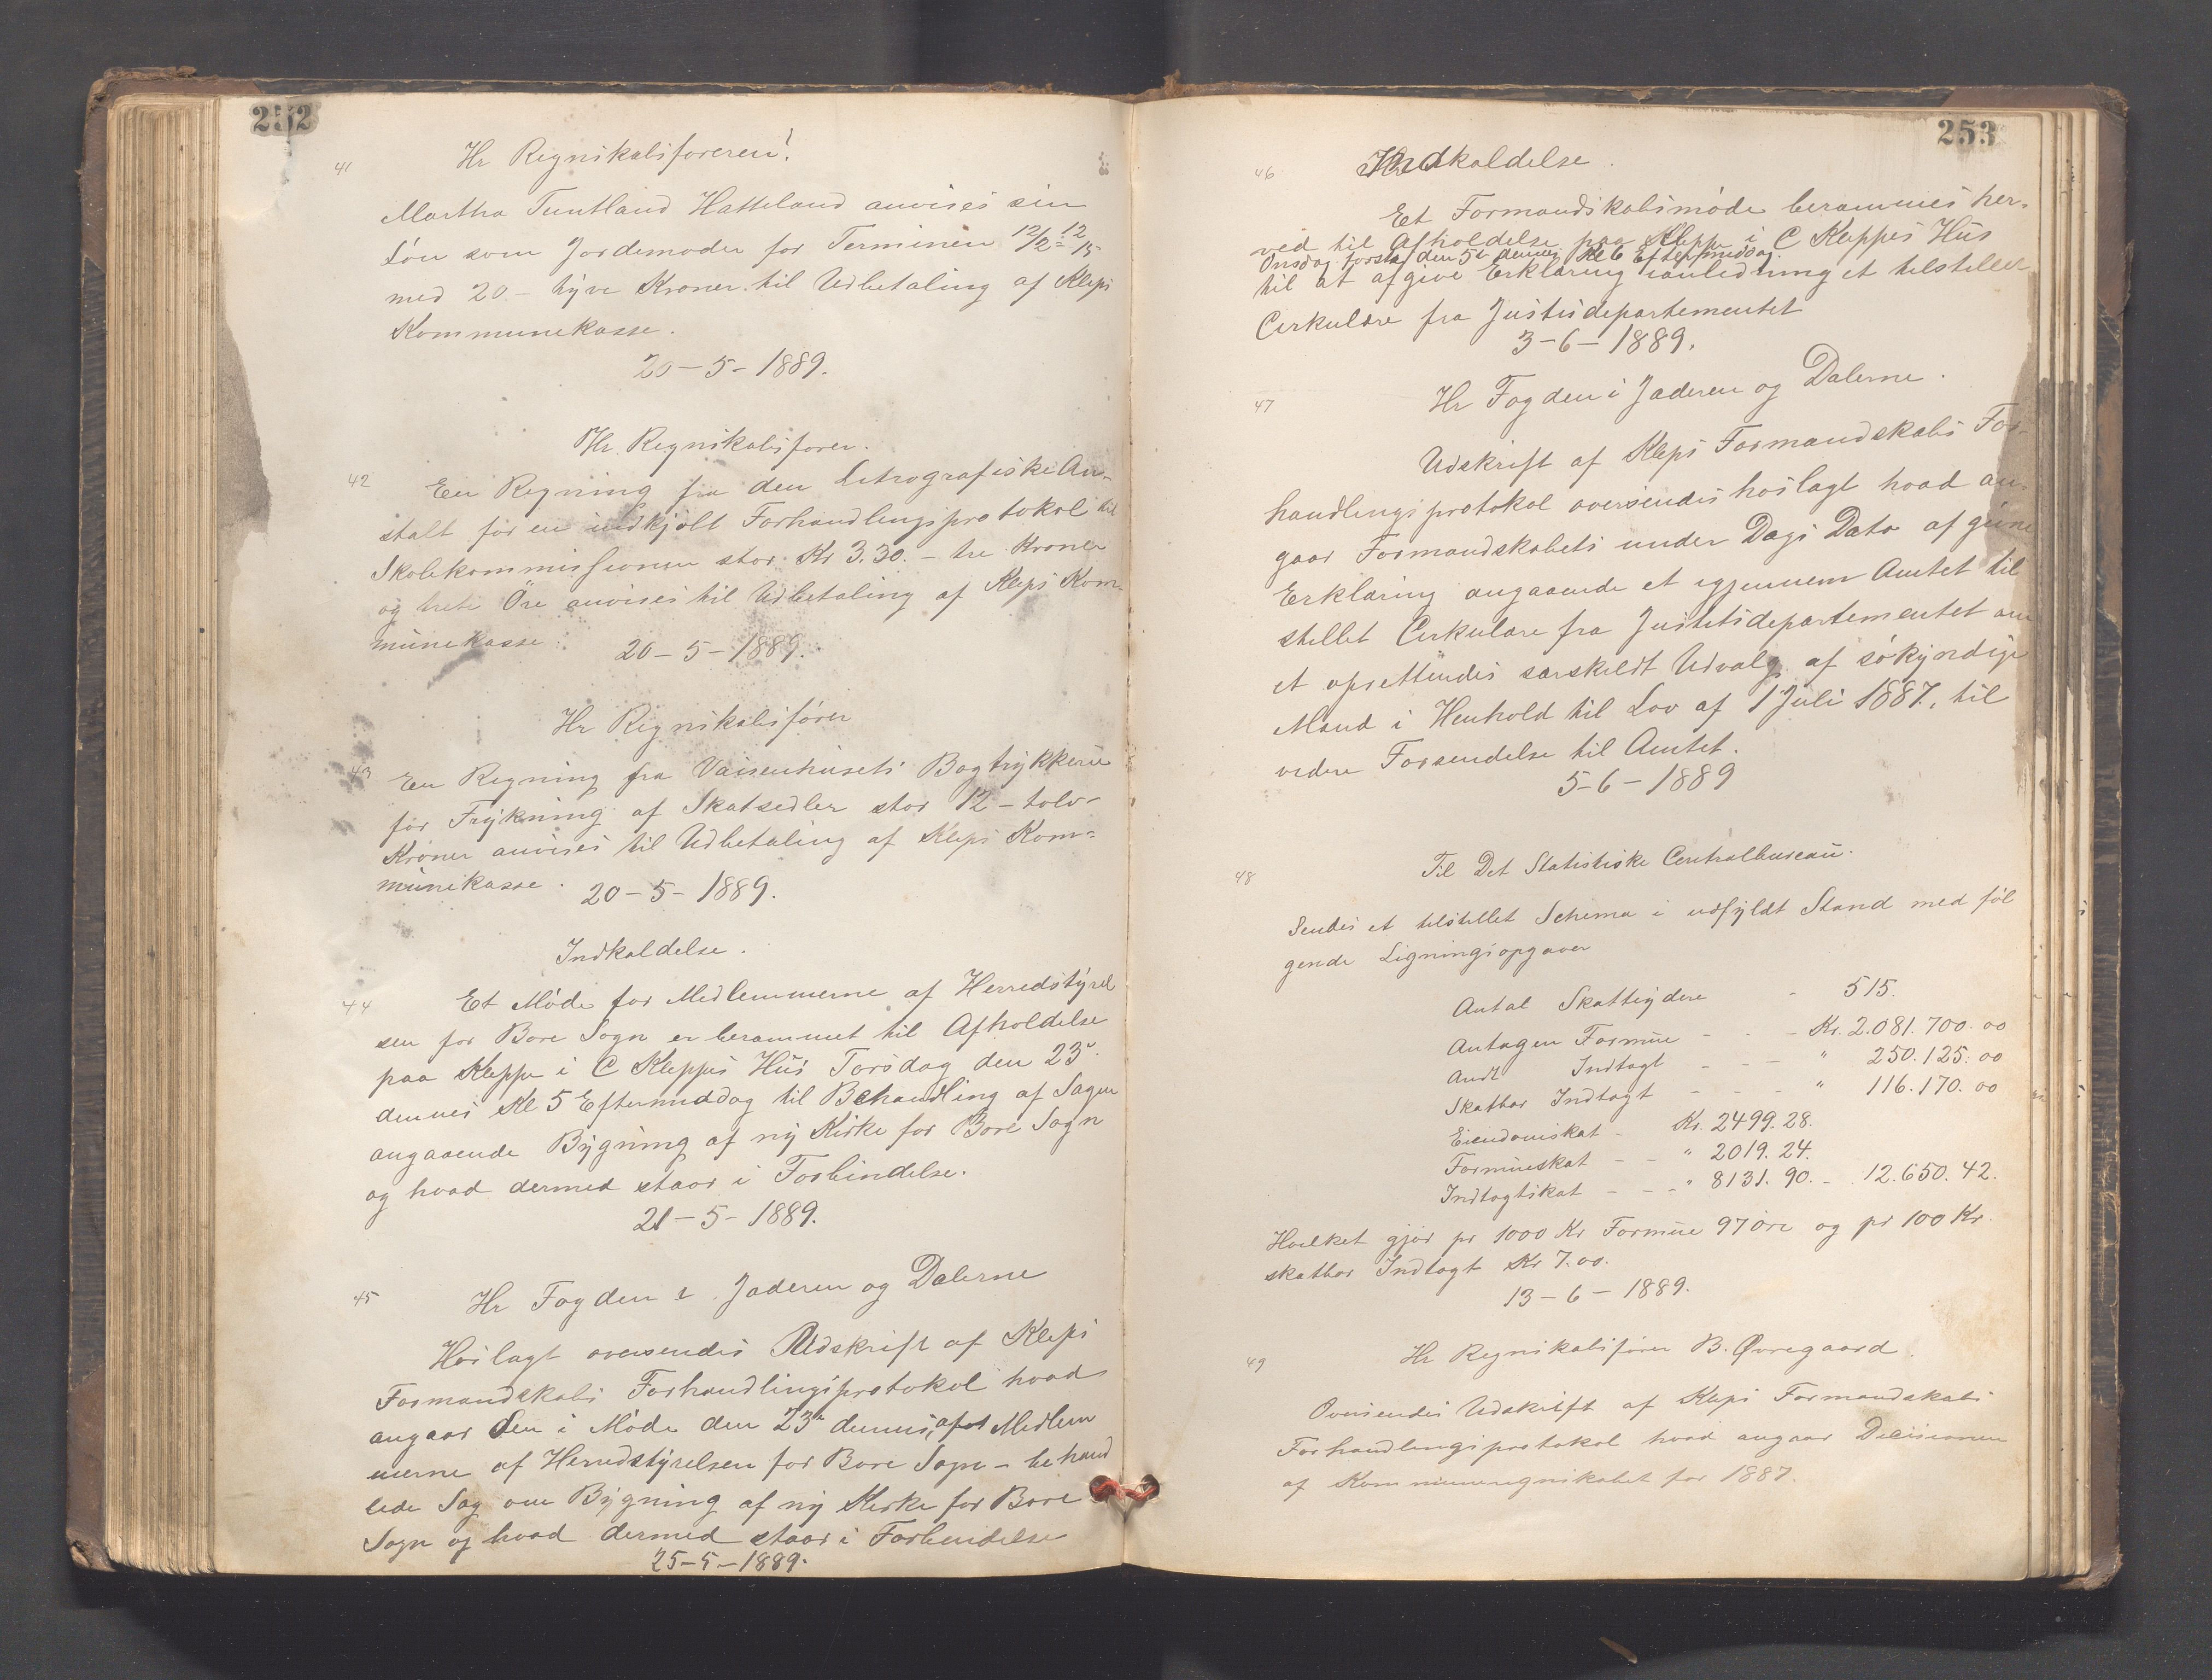 252
41
Hr Regnskabsføreren!
Martha Tuntland Hatteland anvises sin
Løn som Jordemoder for Terminen 12/2 - 12/5
med 20 - tyve Kroner til Udbetaling af Kleps
Kommunekasse.
20-5-1889.
Hr. Regnskabsfører.
42
En Regning fra den Litografiske An-
stalt for en indkjøbt Forhandlingsprotokol til
Skolekommissionen stor Kr 3.30. - tre Kroner
og treti Øre anvises til Udbetaling af Kleps Kom-
munekasse.
20-5-1889.
Hr Regnskabsfører
43
En Regning fra Vaisenhusets Bogtrykkeri
for Trykning af Skatsedler stor 12 - tolv -
Kroner anvises til Udbetaling af Kleps Kom=
munekasse.
20-5-1889.
Indkaldelse.
44
Et Møde for Medlemmerne af Herredstyrel
sen for Bore Sogn er berammet til Afholdelse
paa Kleppe i C Kleppes Hus Torsdag den 23de
dennes Kl 5 Eftermiddag til Behandling af Sagen
angaaende Bygning af ny Kirke for Bore Sogn
og hvad dermed staar i Forbindelse.
21-5-1889.
45
Hr Fogden i Jæderen og Dalerne
Hoslagt oversendes Udskrift af Kleps
Formandskabs Forhandlingsprotokol hvad
angaar den i Møde den 23de dennes, af Medlem
merne af Herredstyrelsen for Bore Sogn - behand
lede Sag om Bygning af ny Kirke for Bore
Sogn og hvad dermed staar i Forbindelse
25-5-1889.
253
46
Indkaldelse.
Et Formandskabsmøde berammes her-
ved til Afholdelse paa Kleppe i C Kleppes Hus
Onsdag førstk. den 5te dennes Kl 6 Eftermiddag
til at afgive Erklæring ianledning et tilstillet
Cirkulære fra Justisdepartementet
3-6-1889.
47
Hr Fogden i Jæderen og Dalerne.
Udskrift af Kleps Formandskabs For-
handlingsprotokol oversendes hoslagt hvad an-
gaar Formandskabets under Dags Dato afgivne
Erklæring angaaende et igjennem Amtet til
stillet Cirkulære fra Justitsdepartementet om
et oprettendes særskildt Udvalg af søkyndige
Mænd i Henhold til Lov af 1 Juli 1887, til
videre Forsendelse til Amtet.
5-6-1889
48
Til Det Statistiske Centralbureau.
Sendes et tilstillet Schema i udfyldt Stand med føl
gende Ligningsopgaver
Antal Skattydere - 515.
Antagen Formue - - - Kr. 2.081.700.00
Andt Indtægt - - - " 250.125.00
Skatbar Indtægt - - - " 116.170.00
Eiendomskat - Kr. 2499.28.
Formueskat - - " 2019.24.
Indtægtskat - - - " 8131.90. - 12.650.42.
Hvilket gjør pr 1000 Kr Formue 97 øre og pr 100 Kr.
skatbar Indtægt Kr 7.00.
13-6-1889.
49
Hr Regnskabsfører B. Øvregaard.
Oversendes Udskrift af Kleps Formandskabs
Forhandlingsprotokol hvad angaar Decisionen
af Kommuneregnskabet for 1887.